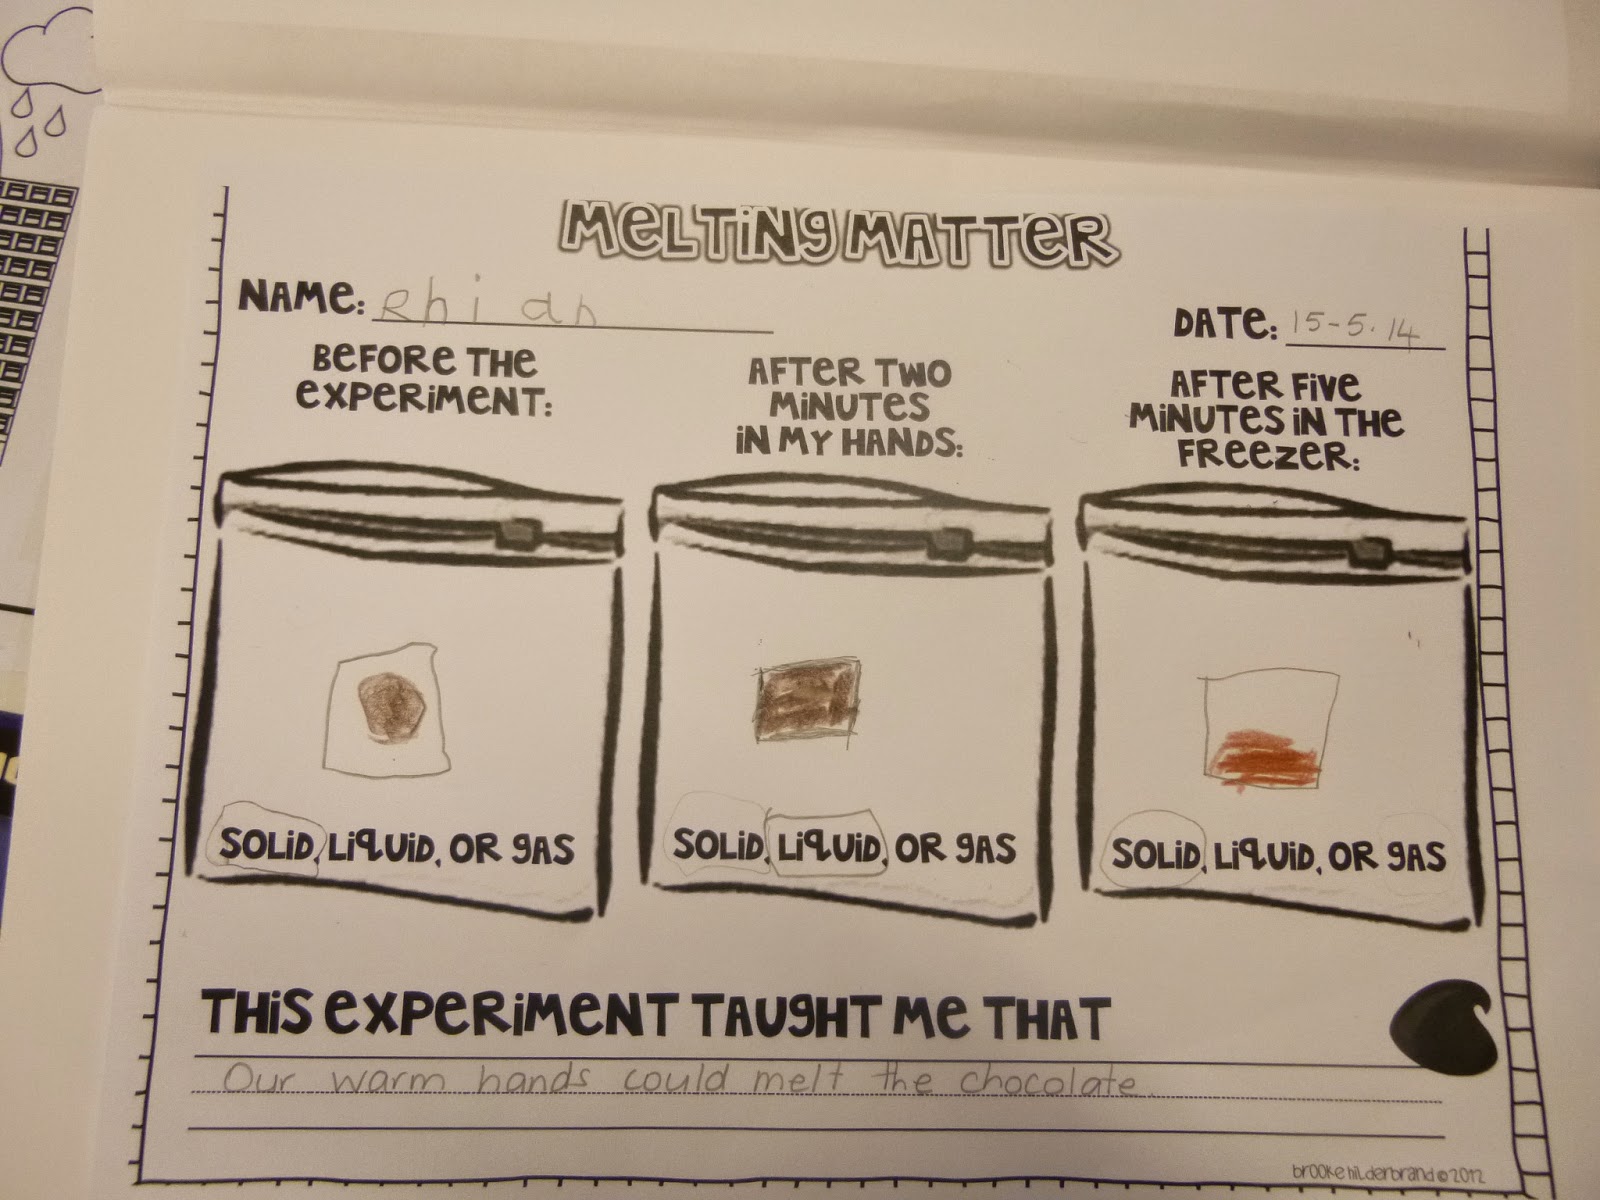 MELTING MATTER
NAME: Rhian
DATE: 15-5.14
BEFORE THE
EXPERIMENT:
AFTER TWO
MINUTES
IN MY HANDS:
AFTER FIVE
MINUTES IN THE
FREEZER:
SOLID, LIQUID, OR GAS
SOLID, LIQUID, OR GAS
SOLID, LIQUID, OR GAS
THIS EXPERIMENT TAUGHT ME THAT
Our warm hands could melt the chocolate.
brooke hilderbrand © 2012